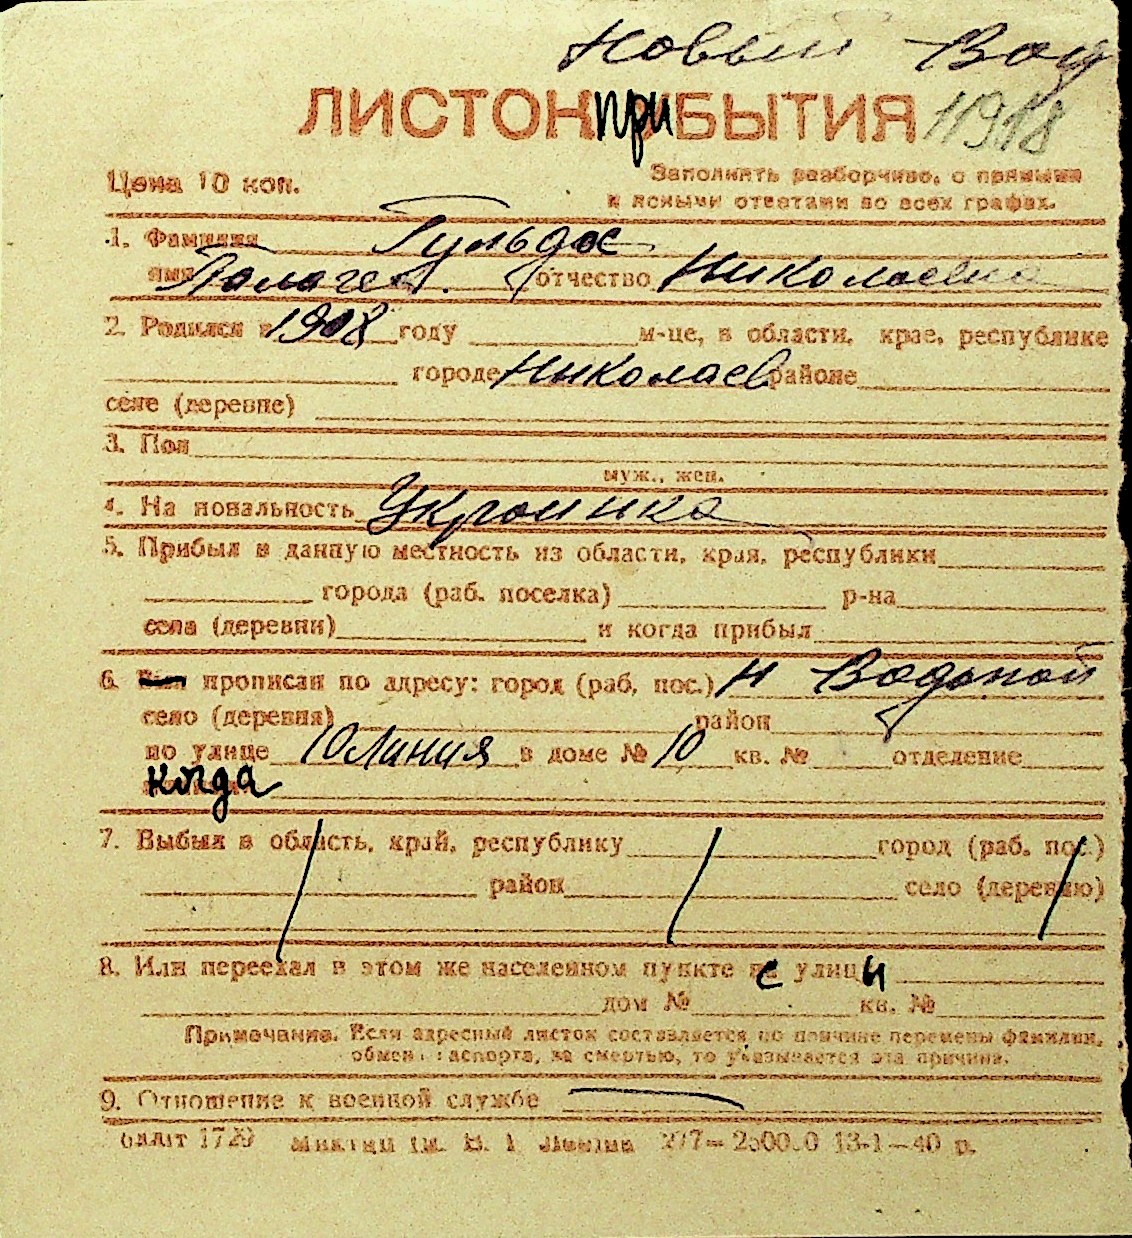 Новый Вод
ЛИСТОК ПРИБЫТИЯ 11918
Цена 10 коп.
Заполнять разборчиво, с прямыми
и ясными ответами во всех графах.
1. Фамилия Гульдас
имя Палагея. отчество Николаевна
2. Родился в 1908 году м-це, в области, крае, республике
городе Николаев районе
селе (деревне)
3. Пол
муж., жен.
4. На нональность Украинка
5. Прибыл в данную местность из области, края, республики
города (раб. поселка) р-на
села (деревни) и когда прибыл
6. прописан по адресу: город (раб. пос.) Н Водопой
село (деревня) район
по улице 10 Линия в доме № 10 кв. № отделение
когда
7. Выбыл в область, край, республику город (раб. пос.)
район село (деревню)
8. Или переехал в этом же населенном пункте с улицы
дом № кв. №
Примечание. Если адресный листок составляется по причине перемены фамилии,
обмен паспорта, за смертью, то указывается эта причина.
9. Отношение к военной службе
13-1—40 р.